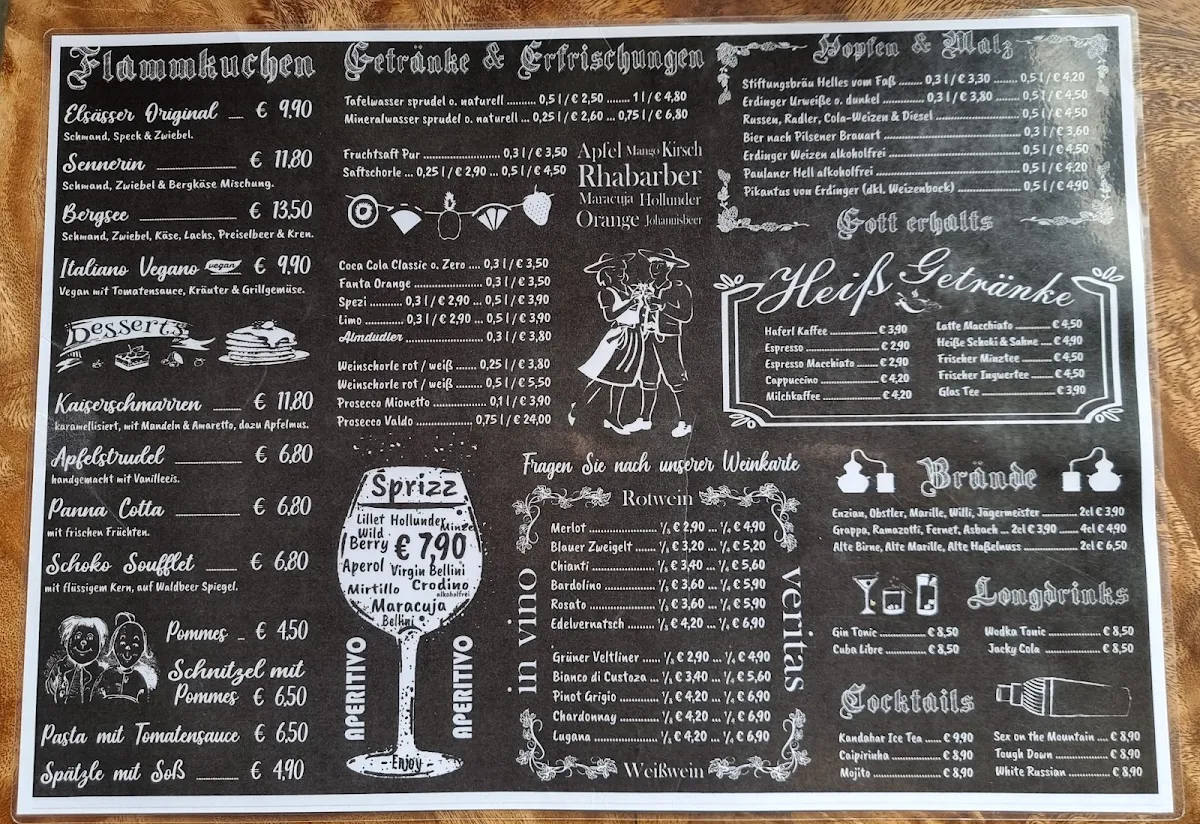 Flammkuchen
Elsässer Original € 9,90
Schmand, Speck & Zwiebel.
Sennerin € 11,80
Schmand, Zwiebel & Bergkäse Mischung.
Bergsee € 13,50
Schmand, Zwiebel, Käse, Lachs, Preiselbeer & Kren.
Italiano Vegano vegan € 9,90
Vegan mit Tomatensauce, Kräuter & Grillgemüse.
Desserts
Kaiserschmarren € 11,80
karamellisiert, mit Mandeln & Amaretto, dazu Apfelmus.
Apfelstrudel € 6,80
handgemacht mit Vanilleeis.
Panna Cotta € 6,80
mit frischen Früchten.
Schoko Soufflet € 6,80
mit flüssigem Kern, auf Waldbeer Spiegel.
Pommes € 4,50
Schnitzel mit
Pommes € 6,50
Pasta mit Tomatensauce € 6,50
Spätzle mit Soß € 4,90
Getränke & Erfrischungen
Tafelwasser sprudel o. naturell ......... 0,5 l / € 2,50 ........ 1 l / € 4,80
Mineralwasser sprudel o. naturell ... 0,25 l / € 2,60 ... 0,75 l / € 6,80
Fruchtsaft Pur ........................ 0,3 l / € 3,50
Saftschorle ... 0,25 l / € 2,90 ... 0,5 l / € 4,50
Apfel Mango Kirsch
Rhabarber
Maracuja Hollunder
Orange Johannisbeer
Coca Cola Classic o. Zero .... 0,3 l / € 3,50
Fanta Orange ...................... 0,3 l / € 3,50
Spezi .......... 0,3 l / € 2,90 ... 0,5 l / € 3,90
Limo ............ 0,3 l / € 2,90 ... 0,5 l / € 3,90
Almdudler ......................... 0,3 l / € 3,80
Weinschorle rot / weiß ....... 0,25 l / € 3,80
Weinschorle rot / weiß ........ 0,5 l / € 5,50
Prosecco Mionetto ................. 0,1 l / € 3,90
Prosecco Valdo ................. 0,75 l / € 24,00
Sprizz
Lillet Hollunder
Wild Minze
Berry € 7,90
Aperol Virgin Bellini
Mirtillo Crodino
alkoholfrei
Maracuja
Bellini
APERITIVO
APERITIVO
- Enjoy -
Fragen Sie nach unserer Weinkarte
Rotwein
Merlot .................. ⅛ € 2,90 ... ¼ € 4,90
Blauer Zweigelt ....... ⅛ € 3,20 ... ¼ € 5,20
Chianti ................. ⅛ € 3,40 ... ¼ € 5,60
Bardolino .............. ⅛ € 3,60 ... ¼ € 5,90
Rosato .................. ⅛ € 3,60 ... ¼ € 5,90
Edelvernatsch ......... ⅛ € 4,20 ... ¼ € 6,90
in vino
veritas
Grüner Veltliner ...... ⅛ € 2,90 ... ¼ € 4,90
Bianco di Custoza ... ⅛ € 3,40 ... ¼ € 5,60
Pinot Grigio ........... ⅛ € 4,20 ... ¼ € 6,90
Chardonnay ............ ⅛ € 4,20 ... ¼ € 6,90
Lugana .................. ⅛ € 4,20 ... ¼ € 6,90
Weißwein
Hopfen & Malz
Stiftungsbräu Helles vom Faß ....... 0,3 l / € 3,30 ......... 0,5 l / € 4,20
Erdinger Urweiße o. dunkel ............ 0,3 l / € 3,80 ....... 0,5 l / € 4,50
Russen, Radler, Cola-Weizen & Diesel ................ 0,5 l / € 4,50
Bier nach Pilsener Brauart ................ 0,3 l / € 3,60
Erdinger Weizen alkoholfrei ................ 0,5 l / € 4,50
Paulaner Hell alkoholfrei ................ 0,5 l / € 4,20
Pikantus von Erdinger (dkl. Weizenbock) ................ 0,5 l / € 4,90
Gott erhalts
Heiß Getränke
Haferl Kaffee ............... € 3,90
Espresso ............... € 2,90
Espresso Macchiato ....... € 2,90
Cappuccino ............... € 4,20
Milchkaffee ............... € 4,20
Latte Macchiato ......... € 4,50
Heiße Schoki & Sahne .... € 4,90
Frischer Minztee ......... € 4,50
Frischer Ingwertee ....... € 4,50
Glas Tee ............... € 3,90
Brände
Enzian, Obstler, Marille, Willi, Jägermeister ........... 2cl € 3,90
Grappa, Ramazotti, Fernet, Asbach ... 2cl € 3,90 ...... 4cl € 4,90
Alte Birne, Alte Marille, Alte Haßelnuss ............... 2cl € 6,50
Longdrinks
Gin Tonic ............... € 8,50
Cuba Libre ............... € 8,50
Wodka Tonic ............... € 8,50
Jacky Cola ............... € 8,50
Cocktails
Kandahar Ice Tea ...... € 9,90
Caipirinha ............... € 8,90
Mojito ............... € 8,90
Sex on the Mountain .... € 8,90
Tough Down ............... € 8,90
White Russian ............... € 8,90